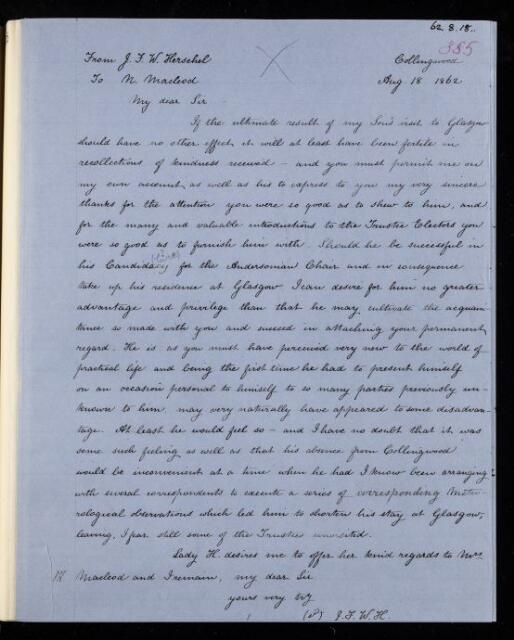 62.8.18.
385
From J. F. W. Herschel Collingwood
To N. Macleod Aug 18 1862
My dear Sir
If the ultimate result of my Son's visit to Glasgow
should have no other effect it will at least have been fertile in
recollections of kindness received – and you must permit me on
my own account as well as his to express to you my very sincere
thanks for the attention you were so good as to shew to him, and
for the many and valuable introductions to the Trustee Electors you
were so good as to furnish him with. Should he be successful in
his Candidacy for the Andersonian Chair and in consequence
take up his residence at Glasgow I can desire for him no greater
advantage and privilege than that he may cultivate the acquain-
tance so made with you and succeed in attaching your permanent
regard. He is as you must have perceived very new to the world of
practical life and being the first time he had to present himself
on an occasion personal to himself to so many parties previously un-
known to him, may very naturally have appeared to some disadvan-
tage. At least he would feel so – and I have no doubt that it was
some such feeling as well as that his absence from Collingwood
would be inconvenient at a time when he had I know been arranging
with several correspondents to execute a series of corresponding Meteo-
rological observations which led him to shorten his stay at Glasgow,
leaving, I fear still some of the Trustees unvisited.
Lady H. desires me to offer her kind regards to Mrs.
Macleod and I remain, my dear Sir
yours very try
(s) J. F. W. H.